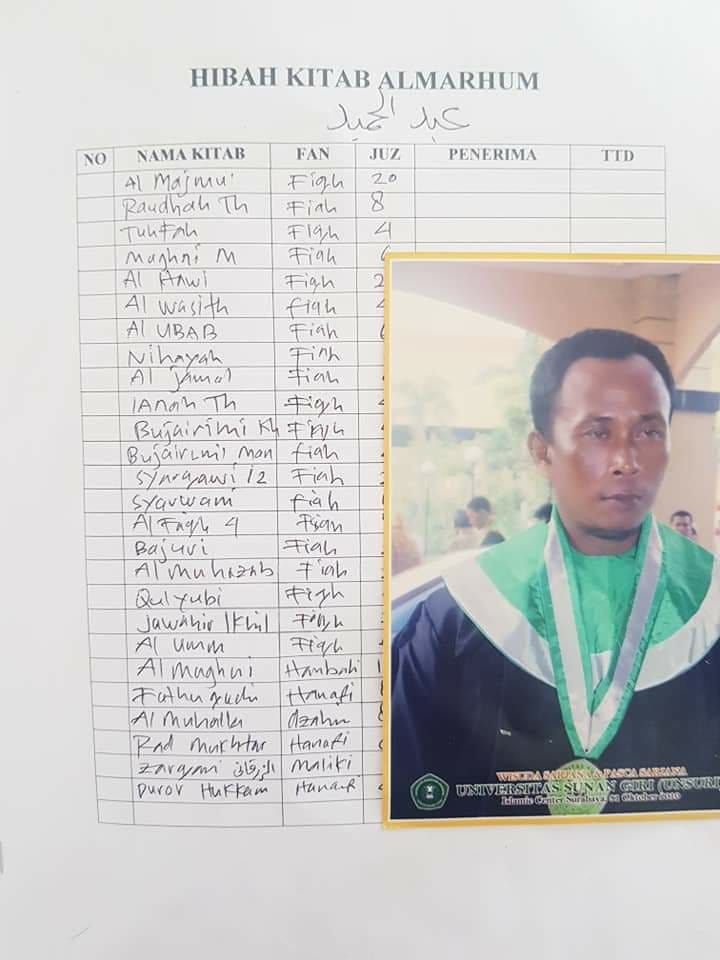 HIBAH KITAB ALMARHUM
عبد الحميد
NO NAMA KITAB FAN JUZ PENERIMA TTD
Al Majmu' Fiqh 20
Raudhah Th Fiqh 8
Tuhfah Fiqh 4
Maghni M Fiqh
Al Hawi Fiqh 2
Al Wasith fiqh
Al UBAB Fiqh
Nihayah Fiqh
Al Jamal Fiqh
IANah Th Fiqh
Bujairimi Kh Fiqh
Bujairimi Man fiqh
Syarqawi 12 Fiqh
Syarwani fiqh
Al Fiqh 4 Fiqh
Bajuri Fiqh
Al Muhazab Fiqh
Qulyubi Fiqh
Jawahir Ikhlil Fiqh
Al Umm Fiqh
Al Maghni Hambali 1
Fathu Hanafi 8
Al Muhalla dzahir 8
Rad Mukhtar Hanafi
Zarqani الزرقاني Maliki
Duror Hukkam Hanafi
WISUDA SARJANA & PASCA SARJANA
UNIVERSITAS SUNAN GIRI (UNSURI)
Islamic Center Surabaya, 31 Oktober 2010